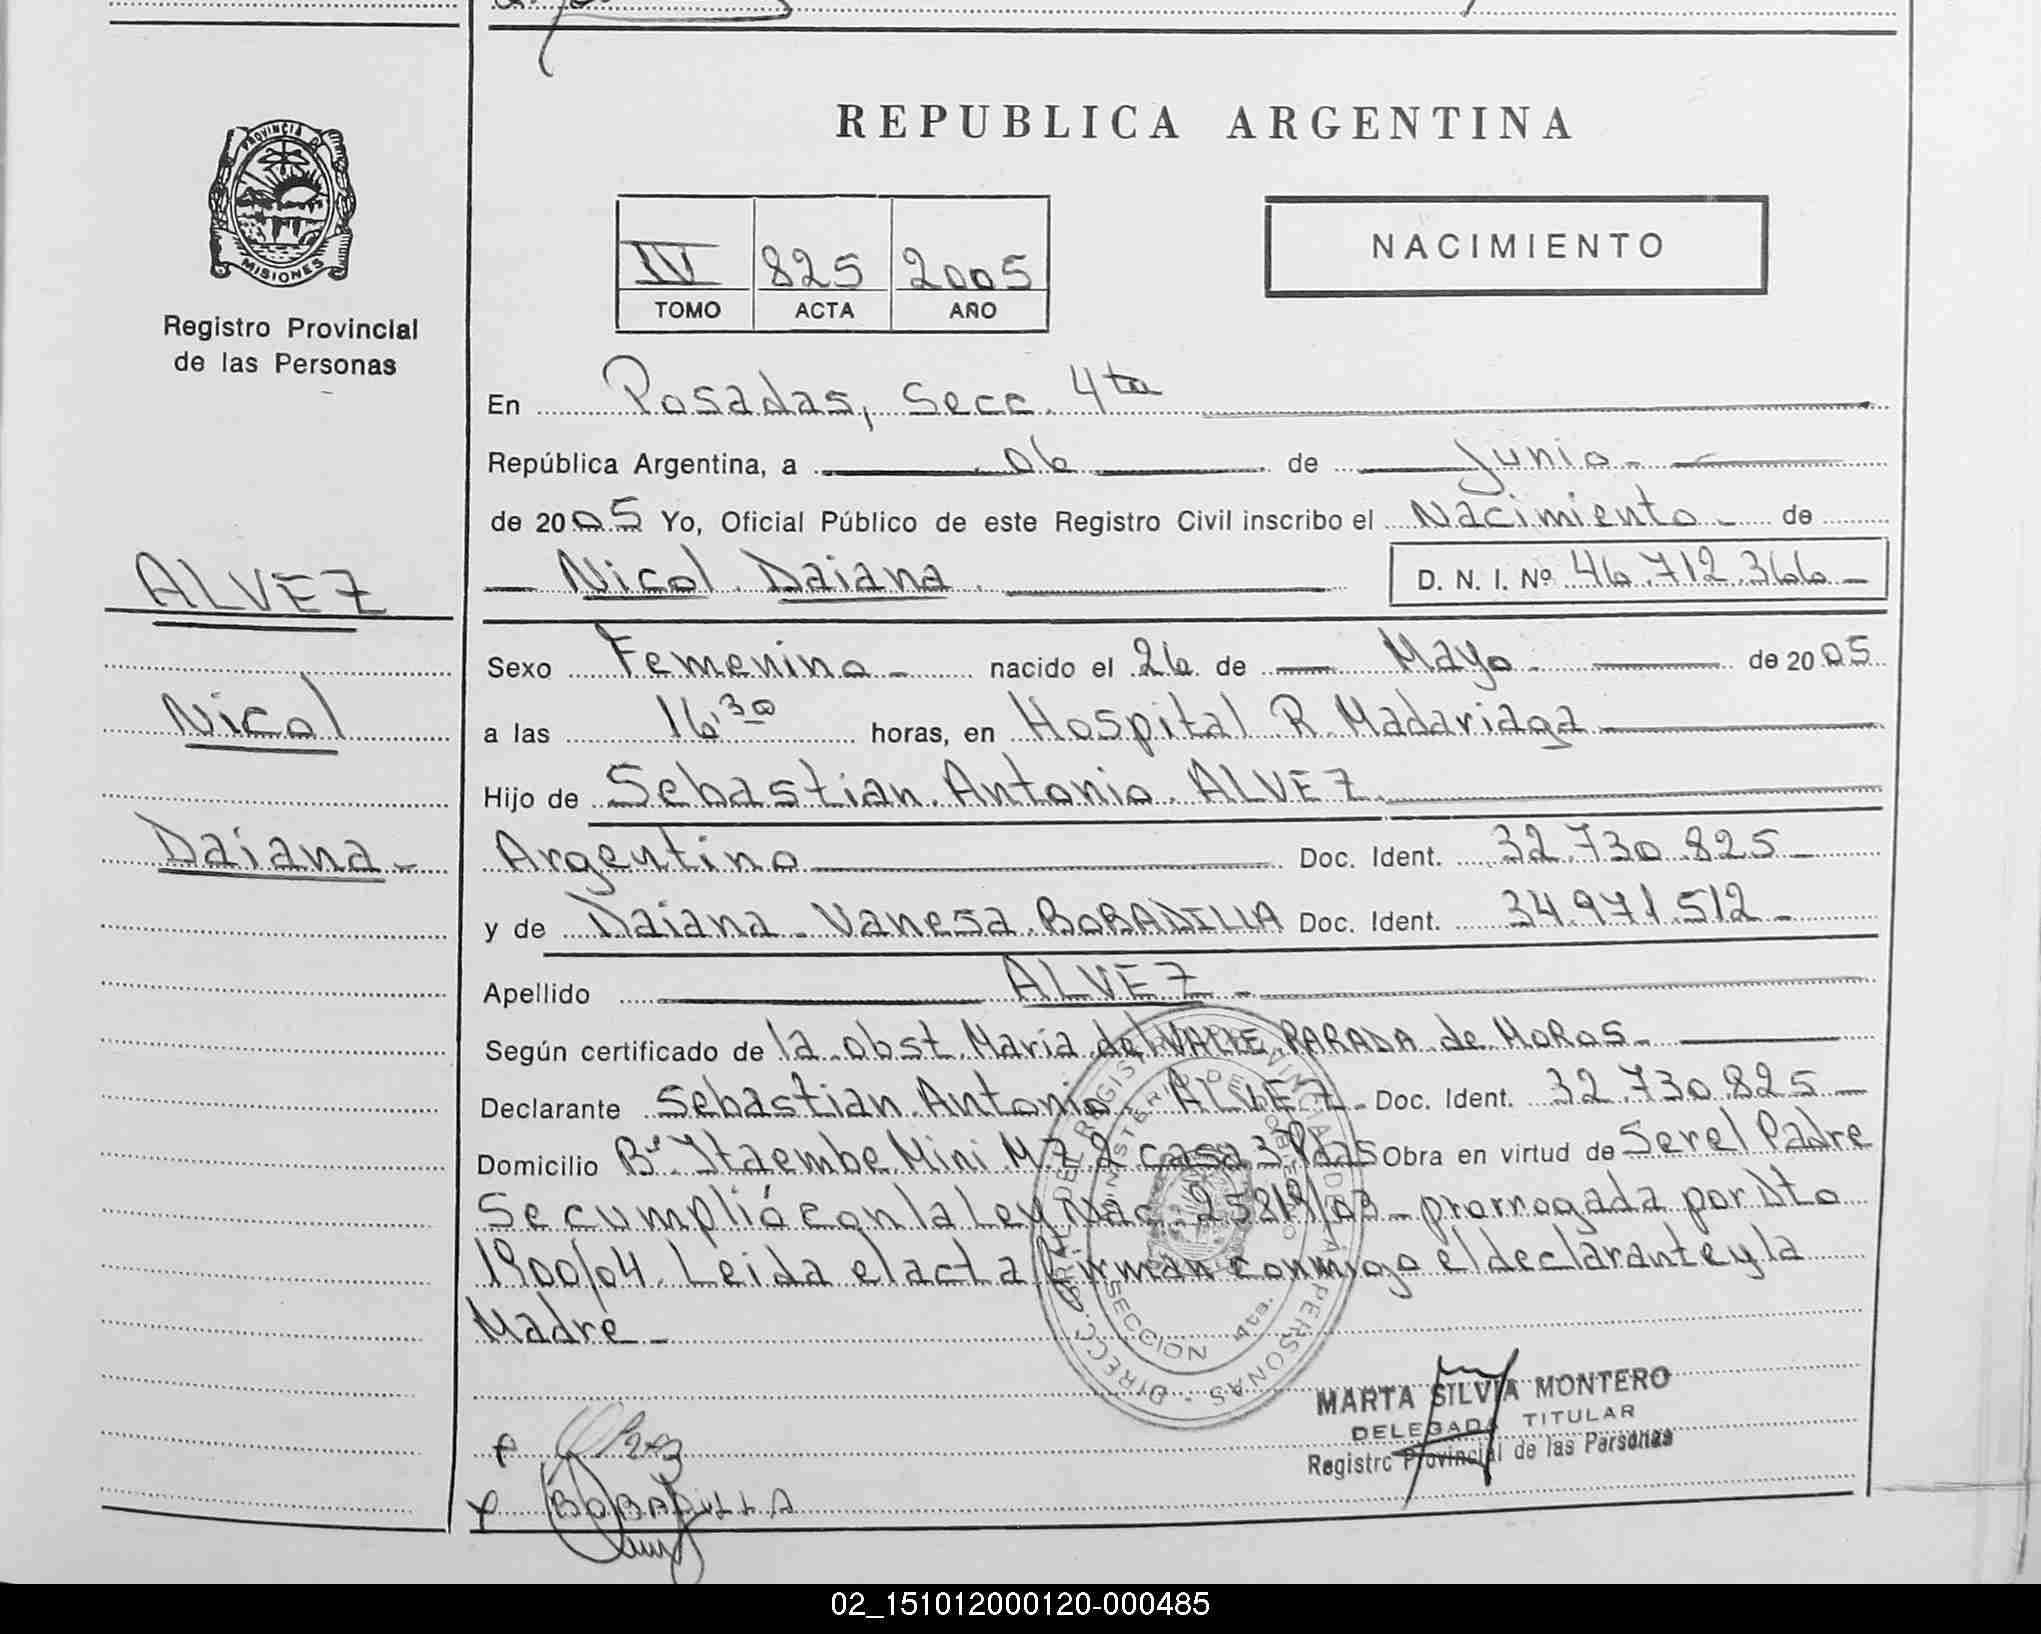 REPUBLICA ARGENTINA
PROVINCIA DE
MISIONES
Registro Provincial
de las Personas
IV 825 2005
TOMO ACTA AÑO
NACIMIENTO
En Posadas, Secc. 4ta
República Argentina, a 06 de Junio
de 2005 Yo, Oficial Público de este Registro Civil inscribo el Nacimiento de
Nicol Daiana D. N. I. Nº 46.712.366
ALVEZ
Nicol
Daiana
Sexo Femenino nacido el 26 de Mayo de 2005
a las 16,30 horas, en Hospital R. Madariaga
Hijo de Sebastian Antonio ALVEZ
Argentino Doc. Ident. 32.730.825
y de Daiana Vanesa BOBADILLA Doc. Ident. 34.971.512
Apellido ALVEZ
Según certificado de la obst. Maria del VALLE PARADA de MOROS
Declarante Sebastian Antonio ALVEZ Doc. Ident. 32.730.825
Domicilio Bº Itaembe Mini MZ 2 casa 3 Pdas Obra en virtud de Ser el Padre
Se cumplió con la Ley Nac. 25819/03 prorrogada por Dto
1900/04. Leida el acta firman conmigo el declarante y la
Madre
MARTA SILVIA MONTERO
DELEGADA TITULAR
Registro Provincial de las Personas
BOBADILLA
02_151012000120-000485